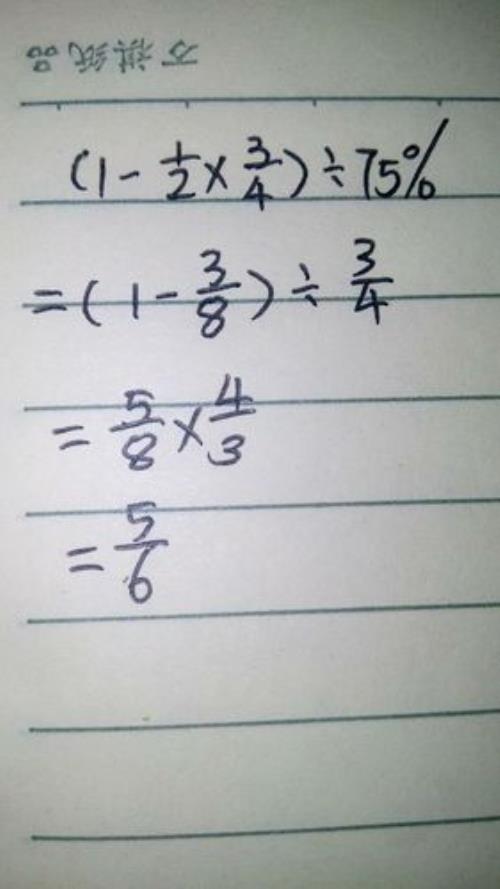 万祺纸品
(1-1/2×3/4)÷75%
=(1-3/8)÷3/4
=5/8×4/3
=5/6